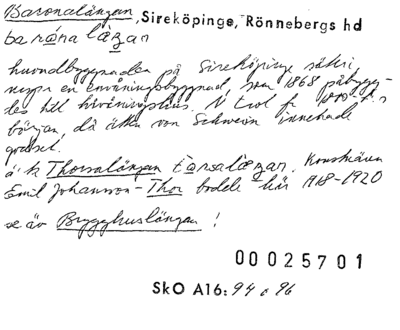 Baronalängan, Sireköpinge, Rönnebergs hd
barónalä̀ŋan
huvudbyggnaden på Sireköpinge säteri,
urspr en envåningsbyggnad, som 1868 påbygg-
des till tvåvåningshus. N trol fr 1800-t:s
början, då ätten von Schwerin innehade
godset.
ä k Thorsalängan. Konstnären
Emil Johanson-Thor bodde här 1918-1920
se äv Brygghuslängan!
00025701
SkO A16: 94 o 96